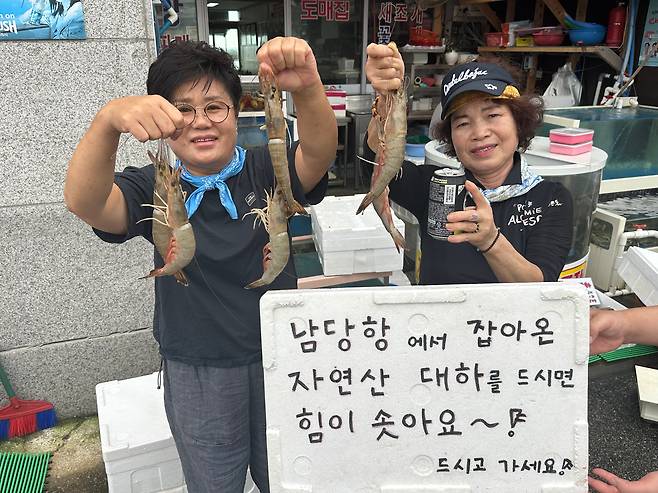 도매집
새조
남당항에서 잡아온
자연산 대하를 드시면
힘이 솟아요~
드시고 가세요